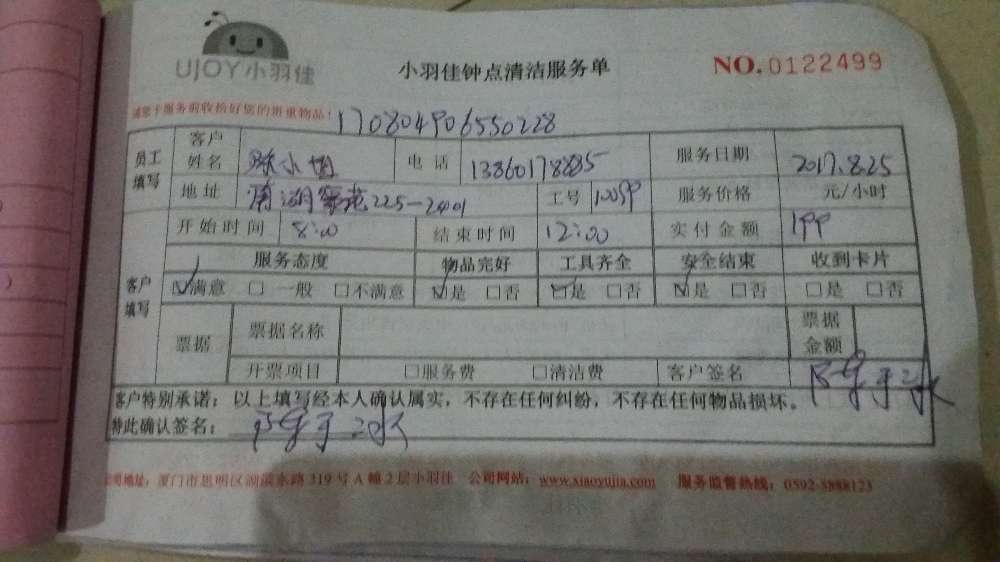 UJOY小羽佳
小羽佳钟点清洁服务单
NO.0122499
请您于服务前收拾好您的贵重物品!
170804906550228
员工填写
客户姓名 陈小姐 电话 13860178885 服务日期 2017.8.25
地址 南湖豪苑225-2401 工号 服务价格 元/小时
客户填写
开始时间 8:00 结束时间 12:00 实付金额 199
服务态度 物品完好 工具齐全 安全结束 收到卡片
☑满意 □一般 □不满意 ☑是 □否 ☑是 □否 ☑是 □否 □是 □否
票据 票据名称 票据金额
开票项目 □服务费 □清洁费 客户签名
客户特别承诺:以上填写经本人确认属实,不存在任何纠纷,不存在任何物品损坏。
特此确认签名:
公司地址:厦门市思明区湖滨东路319号A幢2层小羽佳 公司网站:www.xiaoyujia.com 服务监督热线:0592-5888123